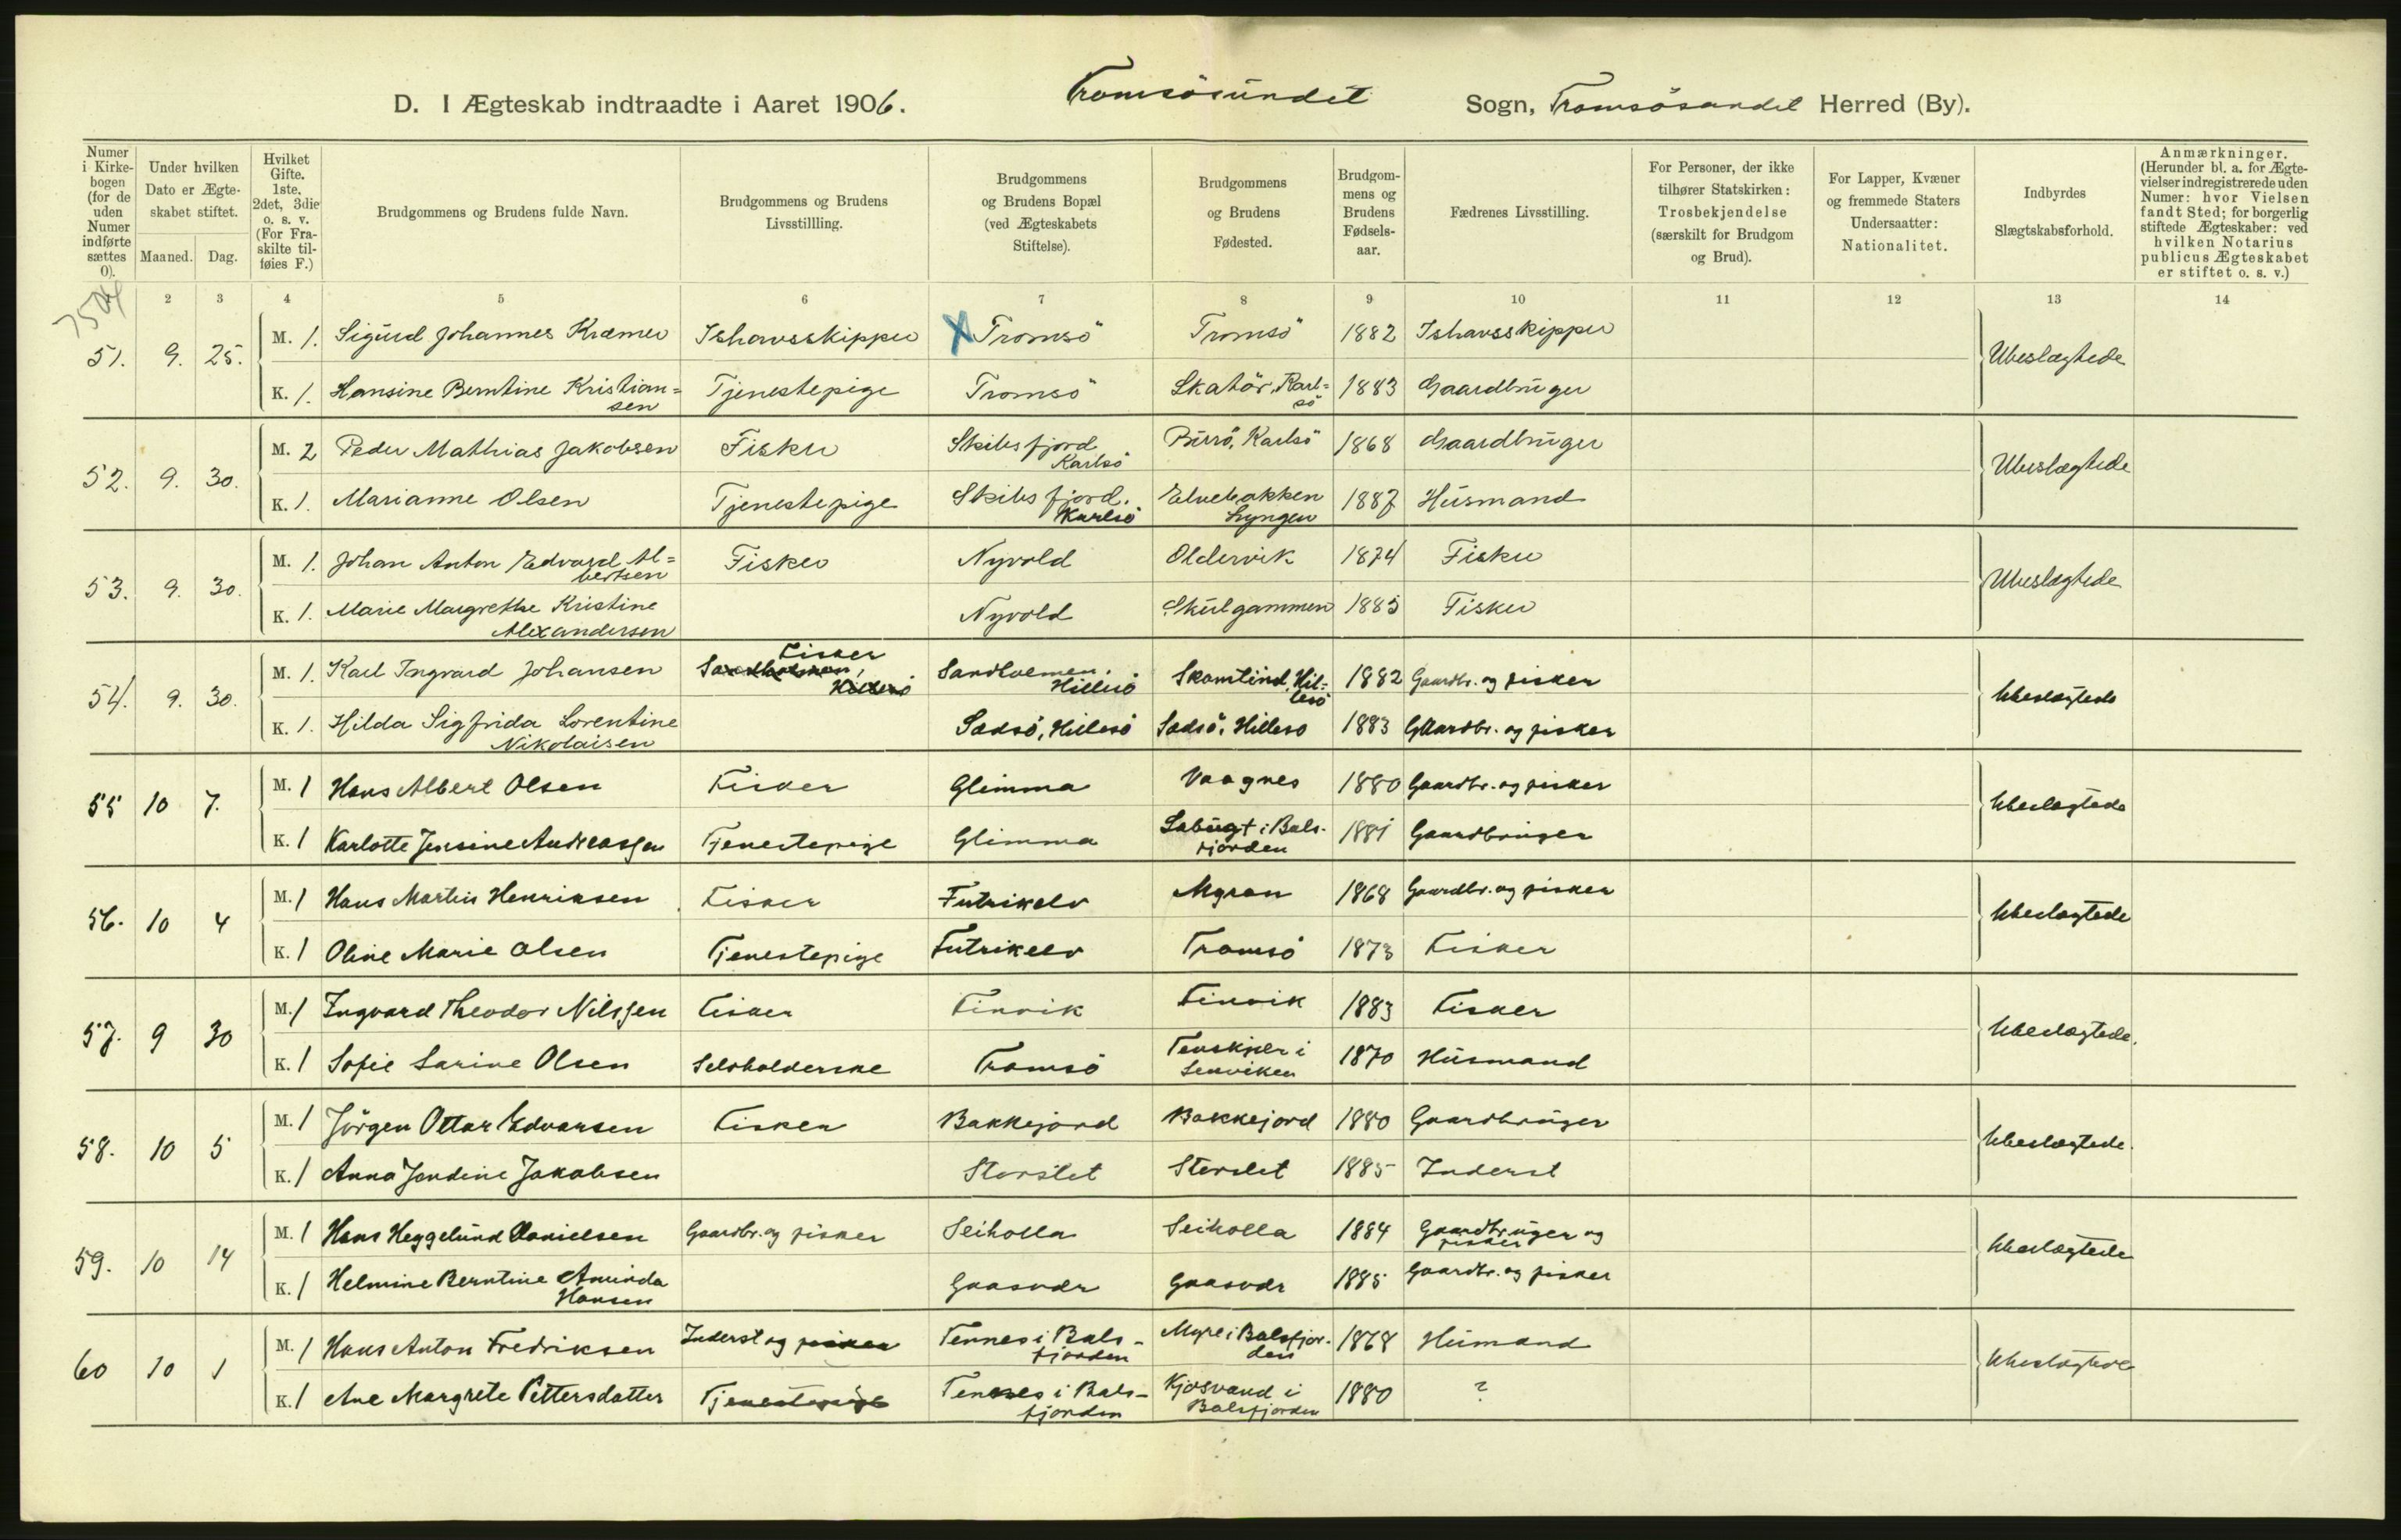 D. I Ægteskab indtraadte i Aaret 1906. Tromsösundet Sogn, Tromsösundet Herred (By).
Numer i Kirkebogen (for de uden Numer indførte sættes 0).
Under hvilken Dato er Ægteskabet stiftet.
Maaned. Dag.
Hvilket Gifte. 1ste, 2det, 3die o. s. v. (For Fraskilte tilføies F.)
Brudgommens og Brudens fulde Navn.
Brudgommens og Brudens Livsstillling.
Brudgommens og Brudens Bopæl (ved Ægteskabets Stiftelse).
Brudgommens og Brudens Fødested.
Brudgommens og Brudens Fødselsaar.
Fædrenes Livsstilling.
For Personer, der ikke tilhører Statskirken: Trosbekjendelse (særskilt for Brudgom og Brud).
For Lapper, Kvæner og fremmede Staters Undersaatter: Nationalitet.
Indbyrdes Slægtskabsforhold.
Anmærkninger. (Herunder bl. a. for Ægtevielser indregistrerede uden Numer: hvor Vielsen fandt Sted; for borgerlig stiftede Ægteskaber: ved hvilken Notarius publicus Ægteskabet er stiftet o. s. v.)
2 3 4 5 6 7 8 9 10 11 12 13 14
51. 9. 25. M. 1. Sigurd Johannes Kræmer Ishavsskipper X Tromsö Tromsö 1882 Ishavsskipper Ubeslægtede
K. 1. Hansine Berntine Kristian=
sen Tjenestepige Tromsö Skatör, Karl=
sö 1883 Gaardbruger
52. 9. 30. M. 2 Peder Mathias Jakobsen Fisker Skibsfjord
Karlsö Burö, Karlsö 1868 Gaardbruger Ubeslægtede
K. 1. Marianne Olsen Tjenestepige Skibsfjord.
Karlsö Elvebakken
Lyngen 1887 Husmand
53. 9. 30. M. 1. Johan Anton Edvard Al=
bertsen Fisker Nyvold Oldervik 1874 Fisker Ubeslægtede
K. 1. Marie Margrethe Kristine
Alexandersen Nyvold Skulgammen 1885 Fisker
54. 9. 30. M. 1. Karl Ingvard Johansen Fisker
Sandholmen,
Hillesö Sandholmen,
Hillesö Skamtind, Hil=
lesö 1882 Gaardbr. og fisker Ubeslægtede
K. 1. Hilda Sigfrida Lorentine
Nikolaisen Sædsö, Hillesö Sædsö, Hilleso 1883 Gaardbr. og fisker
55 10 7. M. 1 Hans Albert Olsen Fisker Glimma Vaagnes 1880 Gaardbr. og fisker Ubeslægtede
K. 1 Karlotte Jensine Andreassen Tjenestepige Glimma Sabugt i Bals-
fjorden 1881 Gaardbruger
56. 10 4 M. 1 Hans Martin Henriksen Fisker Futrikelv Myran 1868 Gaardbr. og fisker Ubeslægtede
K. 1 Oline Marie Olsen Tjenestepige Futrikelv Tromsö 1873 Fisker
57. 9 30 M. 1 Ingvard Theodor Nilssen Fisker Finvik Finvik 1883 Fisker Ubeslægtede.
K. 1 Sofie Sarine Olsen Selvholderske Tromsö Tenskjær i
Lenviken 1870 Husmand
58. 10 5 M. 1 Jörgen Ottar Edvarsen Fisker Bakkejord Bakkejord 1880 Gaardbruger Ubeslægtede.
K. 1 Anna Jendine Jakobsen Storslet Storslet 1885 Inderst
59. 10 14 M. 1 Hans Heggelund Danielsen Gaardbr. og fisker Seiholla Seiholla 1884 Gaardbruger og
fisker Ubeslægtede
K. 1 Helmine Berntine Aminda
Hansen Gaasvær Gaasvær 1885 Gaardbr. og fisker
60 10 1 M. 1 Hans Anton Fredriksen Inderst og fisker Tennes i Bals-
fjorden Myre i Balsfjor-
den 1878 Husmand Ubeslægtede
K. 1 Ane Margrete Pettersdatter Tjenestepige Tennes i Bals-
fjorden Kjosvand i
Balsfjorden 1880 ?